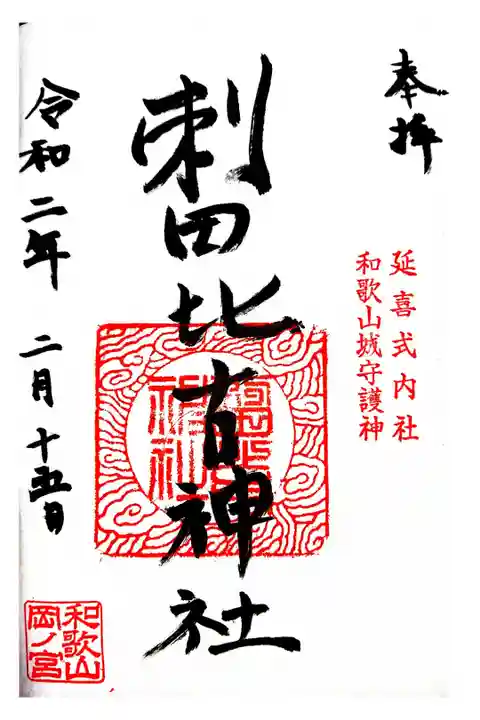 奉拝
延喜式内社
和歌山城守護神
刺田比古神社
令和二年 二月十五日
和歌山
岡ノ宮